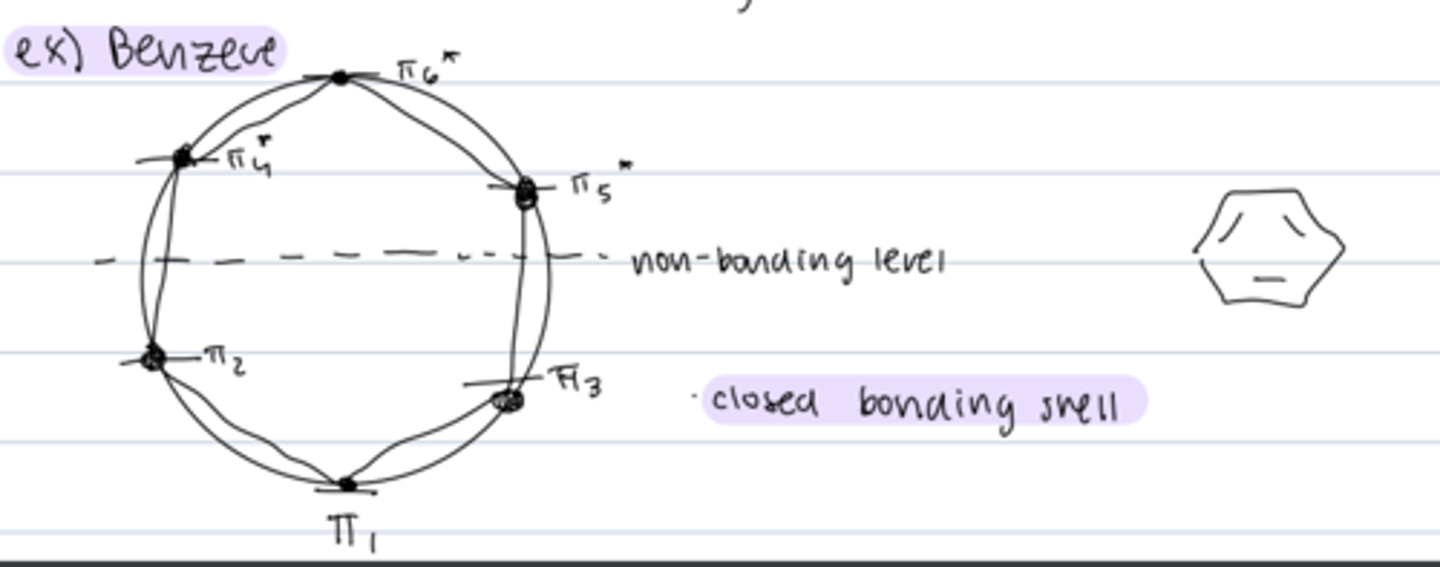 ex) Benzene
π6*
π4*
π5*
non-bonding level
π2
π3
· closed bonding shell
π1